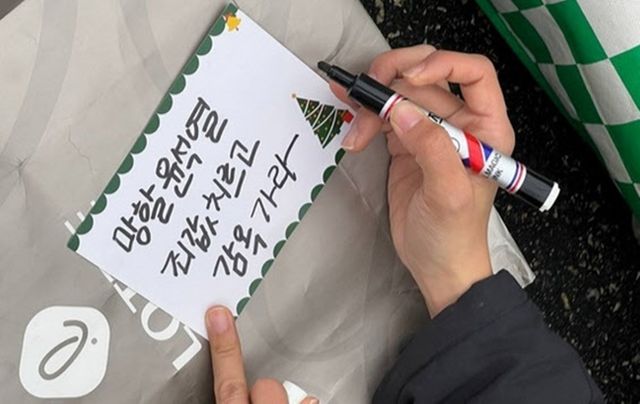 망할 윤석열
죄값 치르고
감옥 가라